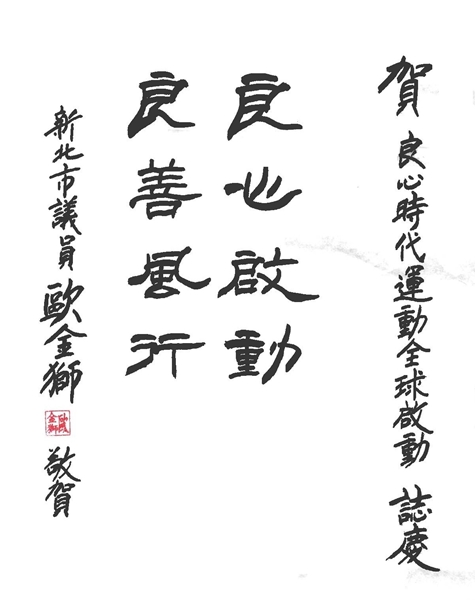 賀 良心時代運動全球啟動 誌慶
良心啟動
良善風行
新北市議員 歐金獅 敬賀